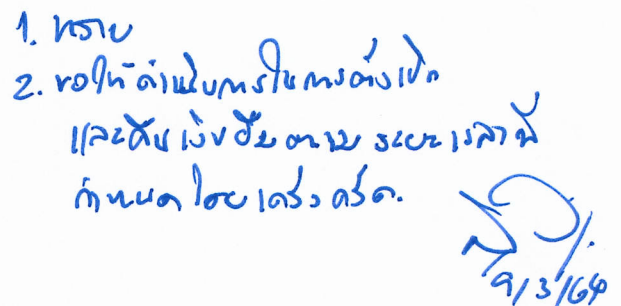 1. ทราบ
2. ขอให้ดำเนินการในการตั้งเบิก
และคืนเงินยืมตามระยะเวลาที่
กำหนดโดยเคร่งครัด.
9/3/64